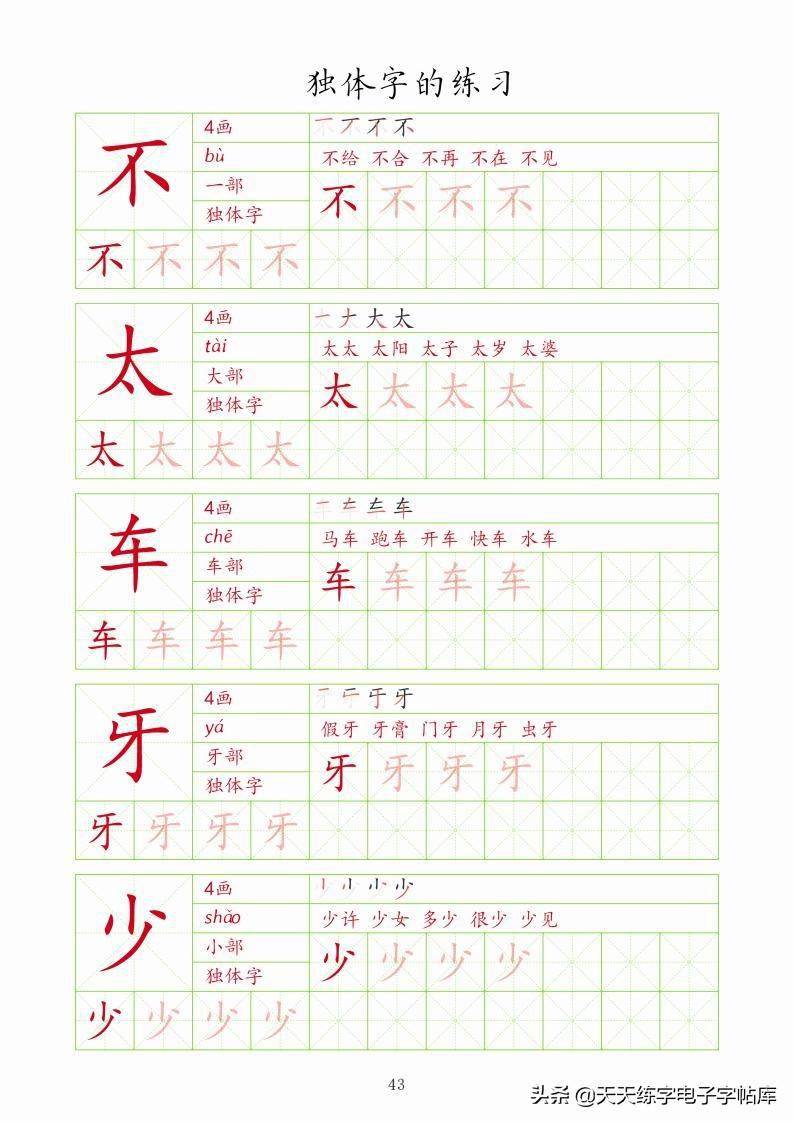 独体字的练习
不 4画 不不不不
bù 不给 不合 不再 不在 不见
一部 不不不不
独体字
不不不不
太 4画 一大大太
tài 太太 太阳 太子 太岁 太婆
大部 太太太太
独体字
太太太太
车 4画 车
chē 马车 跑车 开车 快车 水车
车部 车车车车
独体字
车车车车
牙 4画 牙
yá 假牙 牙膏 门牙 月牙 虫牙
牙部 牙牙牙牙
独体字
牙牙牙牙
少 4画 少
shǎo 少许 少女 多少 很少 少见
小部 少少少少
独体字
少少少少
43
头条 @天天练字电子字帖库